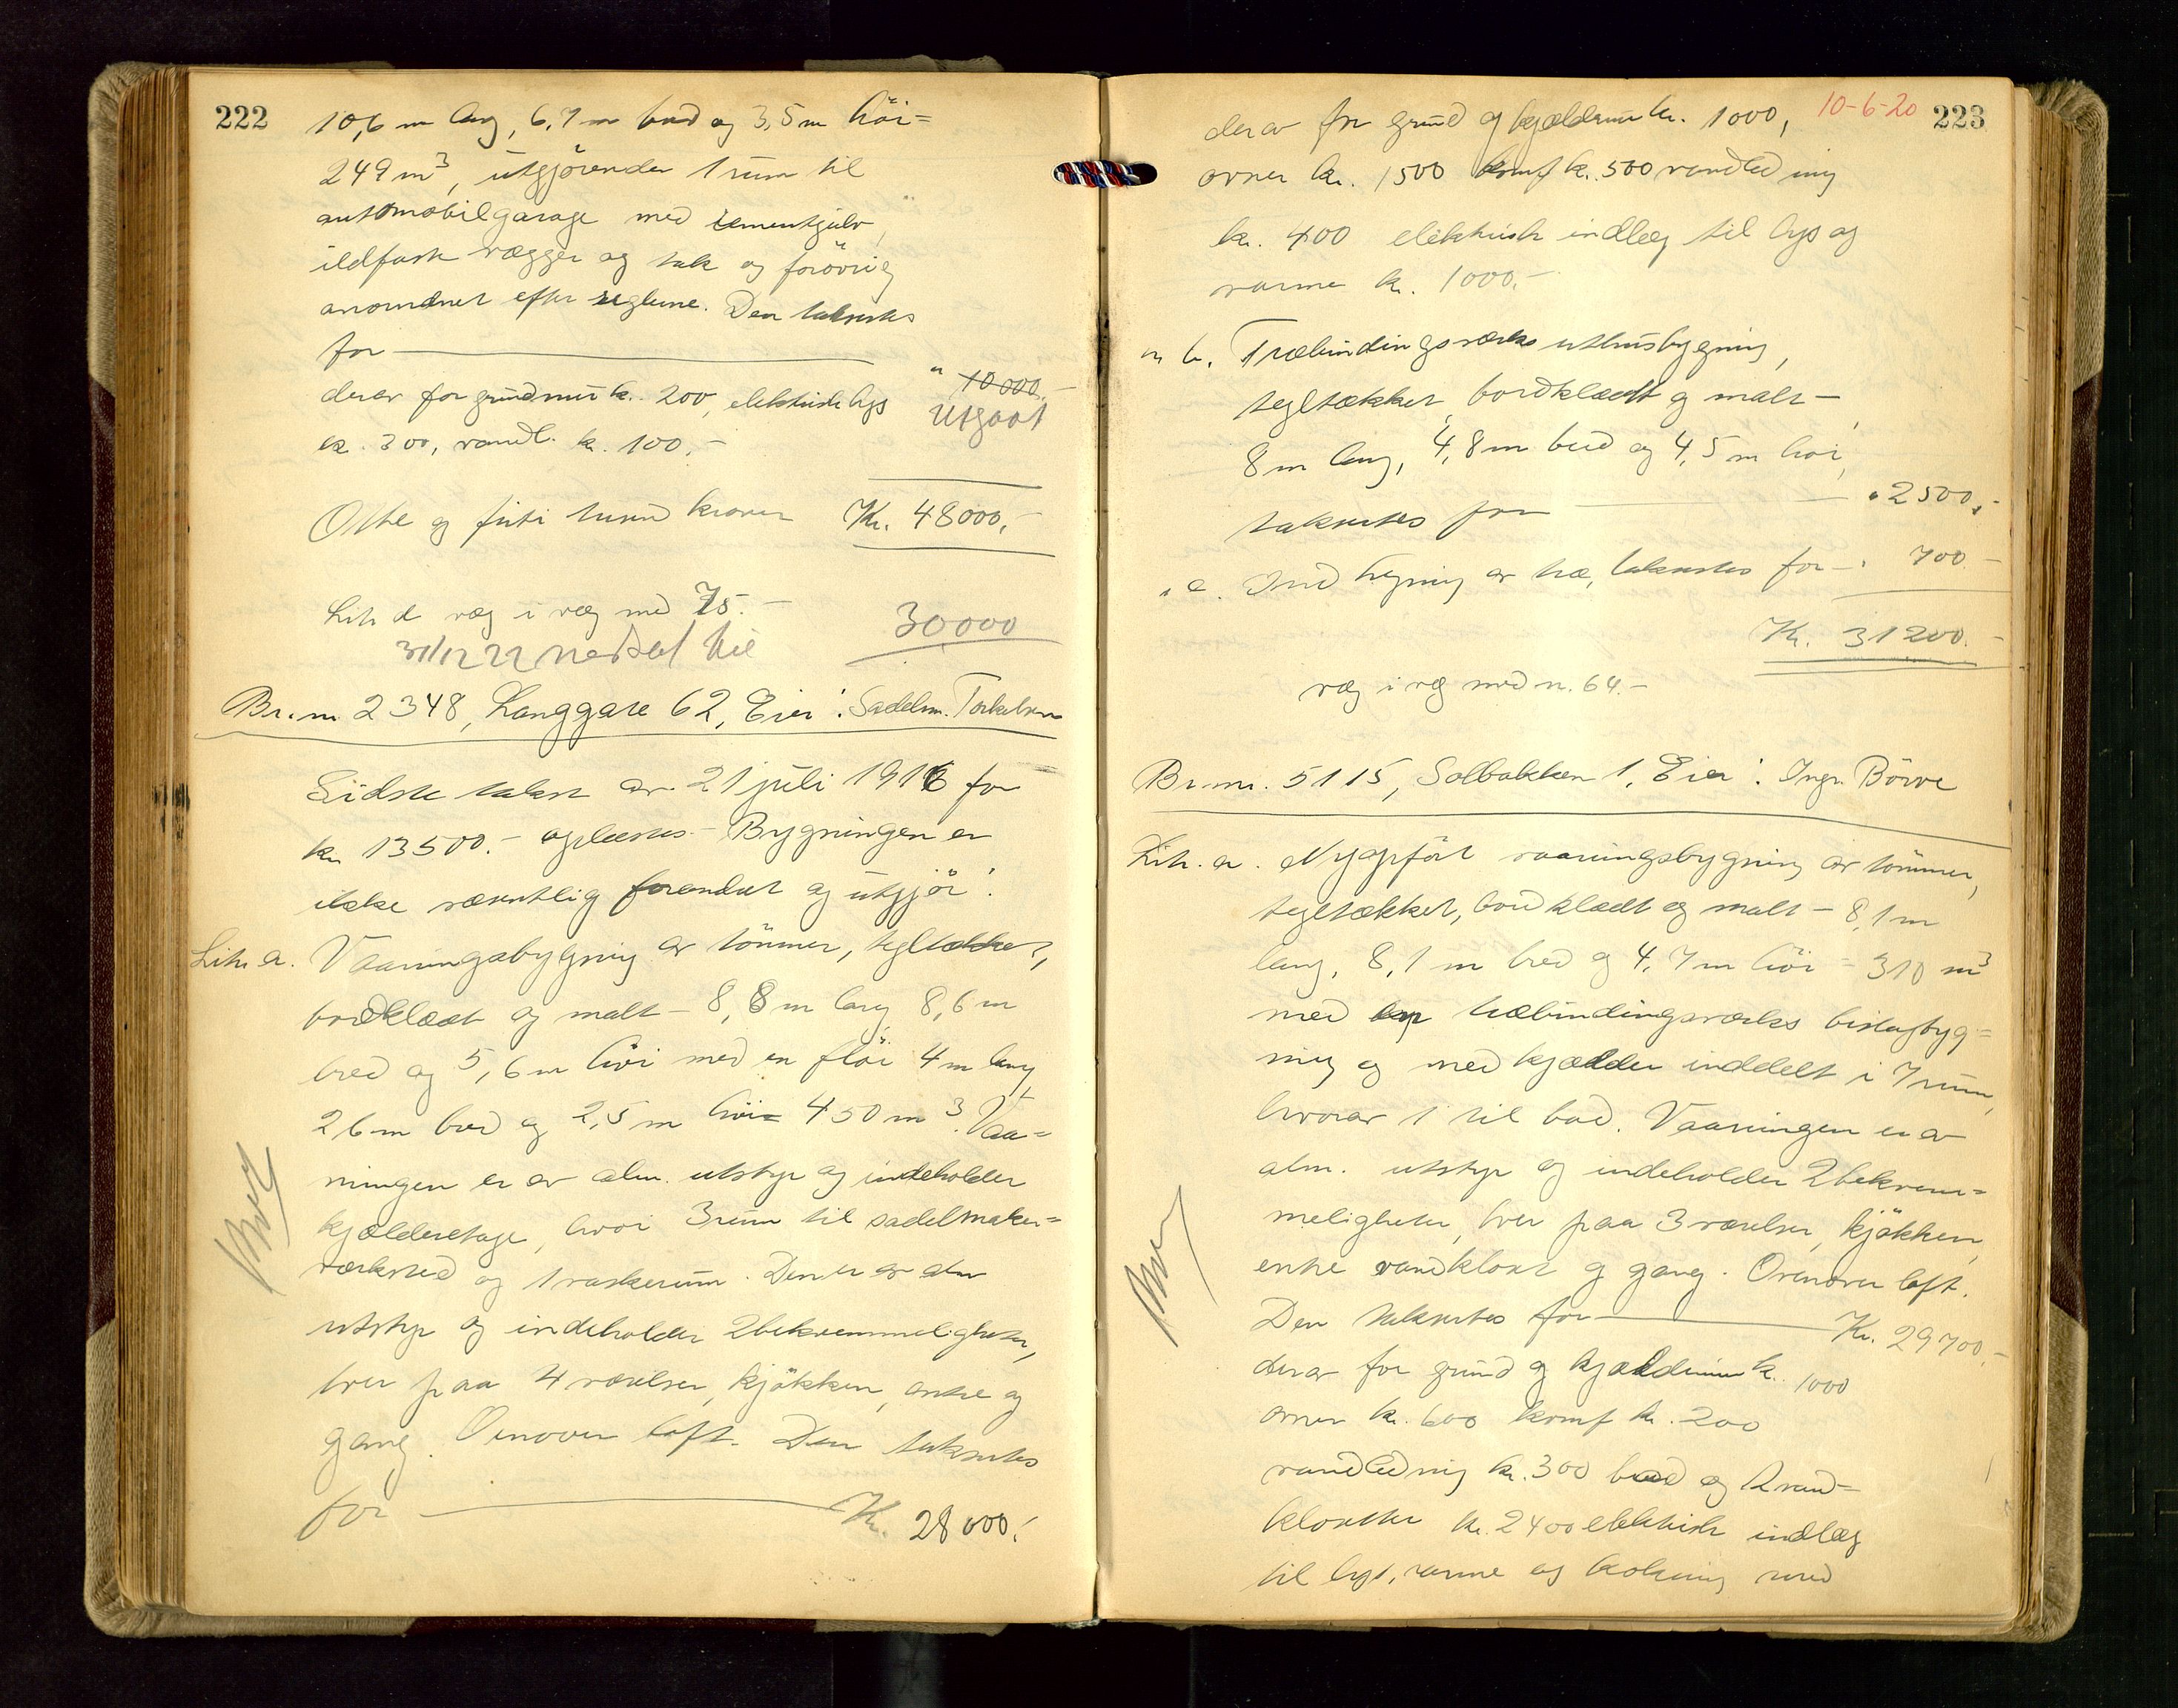 222
10,6 m lang, 6,7 m bred og 3,5 m höi =
249 m³, utgjörende 1 rum til
automobilgarage med cementgulv,
ildfaste vægger og tak og forövrig
anordnet efter reglerne. Den takseres
for
" 10 000.-
derav for grundmur k. 200, elektrisk lys
Utgaat
kr. 300, vandl. k. 100.-
Otte og firti tusind kroner Kr. 48000.-
Litr d væg i væg med 75.-
31/12 22 nedsat til 30,000
Br.nr. 2348, Langgate 62, Eier: Sadelm. Torkelsen
Sidste takst av 21 juli 1916 for
kr. 13500.- oplæstes. Bygningen er
ikke væsentlig forandret og utgjör:
Litr. a. Vaaningsbygning av tömmer, tegltækket,
bordklædt og malt - 8,8 m lang 8,6 m
bred og 5,6 m höi med en flöi 4 m lang,
2,6 m bred og 2,5 m höi = 450 m³. Vaa=
ningen er av alm. utstyr og indeholder
kjælderetage, hvori 3 rum til sadelmaker=
verksted og 1 vaskerum. Den er av alm
utstyr og indeholder 2 bekvemmeligheter,
hver paa 4 værelser, kjökken, entre og
gang. Ovenover loft. Den takseres
for Kr. 28000.-
10-6-20 223
derav for grund og kjældermur kr. 1000,
ovner kr. 1500 komf k. 500 vandledning
kr. 400 elektrisk indlæg til lys og
varme kr. 1000.-
" b. Træbindingsverks uthusbygning,
tegltækket, bordklædt og malt -
8 m lang, 4,8 m bred og 4,5 m höi,
takseres for " 2500.-
" c. Indhegning av træ, takseres for " 700.-
Kr. 31200.-
væg i væg med n. 64.-
Br.nr. 5115, Solbakken 1, Eier: Ingr. Börve
Litr. a. Nyopfört vaaningsbygning av tömmer,
tegltækket, bordklædt og malt - 8,1 m
lang, 8,1 m bred og 4,7 m höi = 310 m³
med træbindingsverks bislagbyg=
ning og med kjælder inddelt i 7 rum,
hvorav 1 til bad. Vaaningen er av
alm. utstyr og indeholder 2 bekvem=
meligheter, hver paa 3 værelser, kjökken,
entre vandkloset og gang. Ovenover loft.
Den takseres for Kr. 29700.-
derav for grund og kjældermur k. 1000
ovner kr. 600 komf kr. 200
vandledning kr. 300 bad og 2 vand=
klosetter kr. 2400 elektrisk indlæg
til lys, varme og kokning med